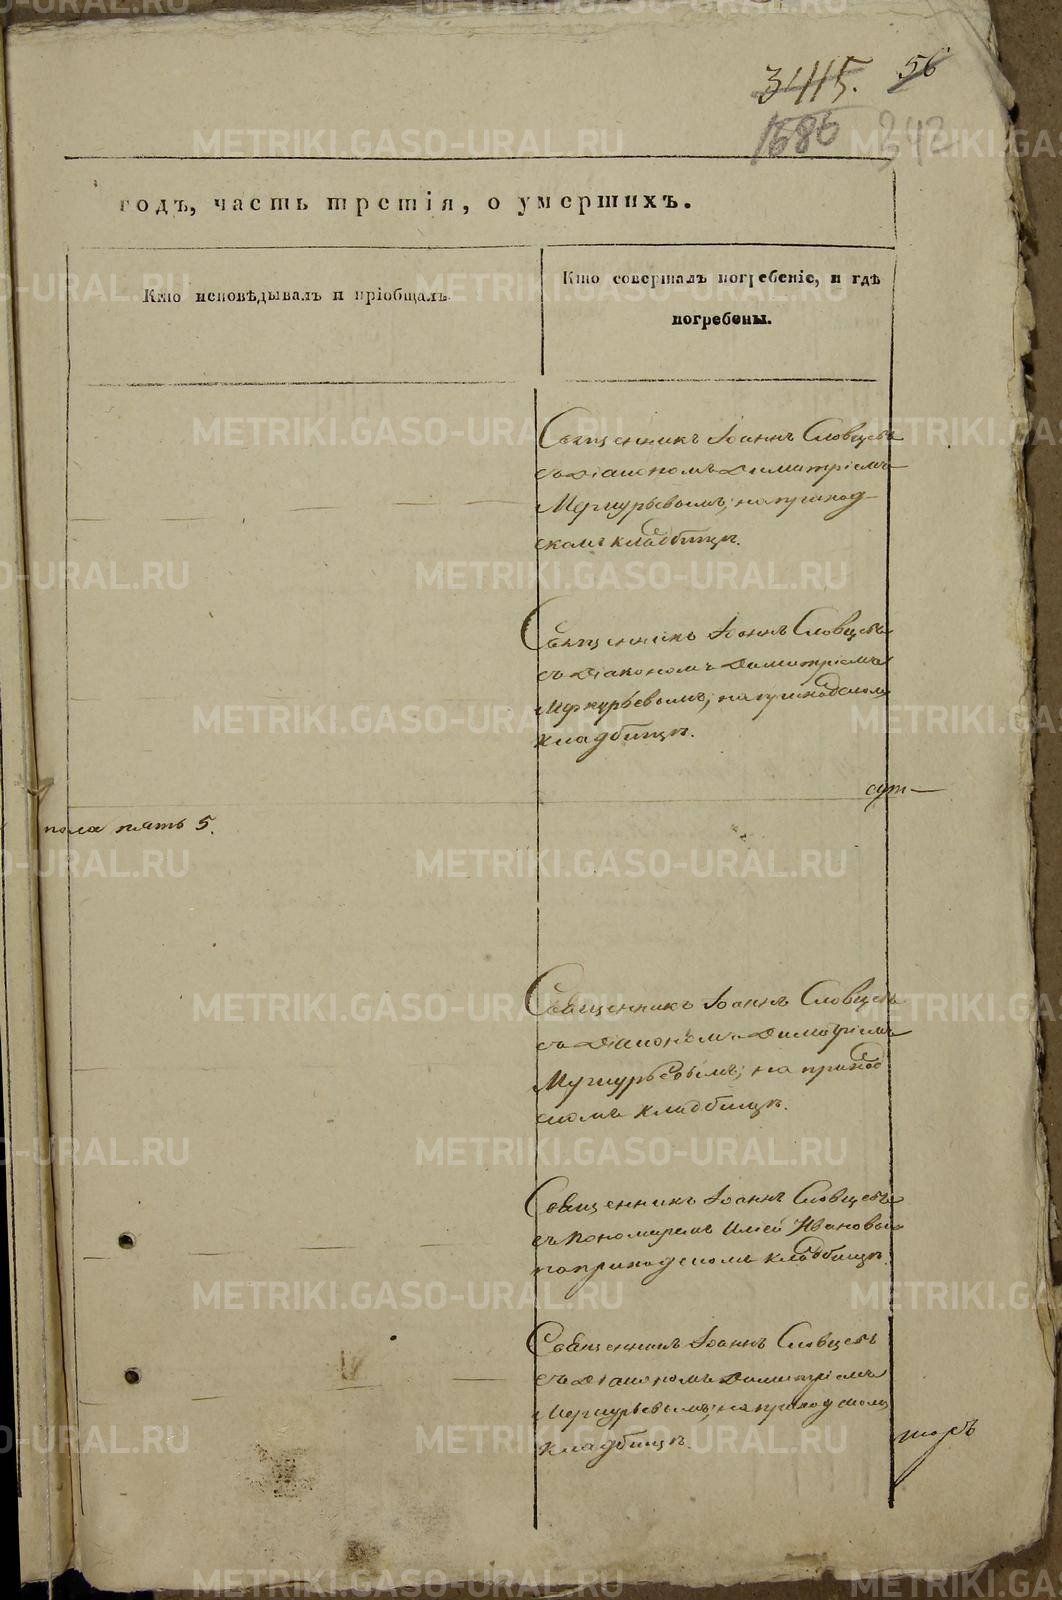 3415. 56
1686 342
годъ, часть третія, о умершихъ.
Кто исповѣдывалъ и пріобщалъ.
Кто совершалъ погребеніе, и гдѣ
погребены.
Священникъ Іоаннъ Словцевъ
съ Діакономъ Димитріемъ
Меркурьевымъ; на приход-
скомъ кладбищѣ.
Священникъ Іоаннъ Словцевъ
съ Діакономъ Димитріемъ
Меркурьевымъ; на приходскомъ
кладбищѣ.
пола пять 5.
Священникъ Іоаннъ Словцевъ
съ Діакономъ Димитріемъ
Меркурьевымъ; на приход
скомъ кладбищѣ.
Священникъ Іоаннъ Словцевъ
съ пономаремъ Ивановымъ
на приходскомъ кладбищѣ.
Священникъ Іоаннъ Словцевъ
съ Діакономъ Димитріемъ
Меркурьевымъ; на приходскомъ
кладбищѣ.
METRIKI.GASO-URAL.RU